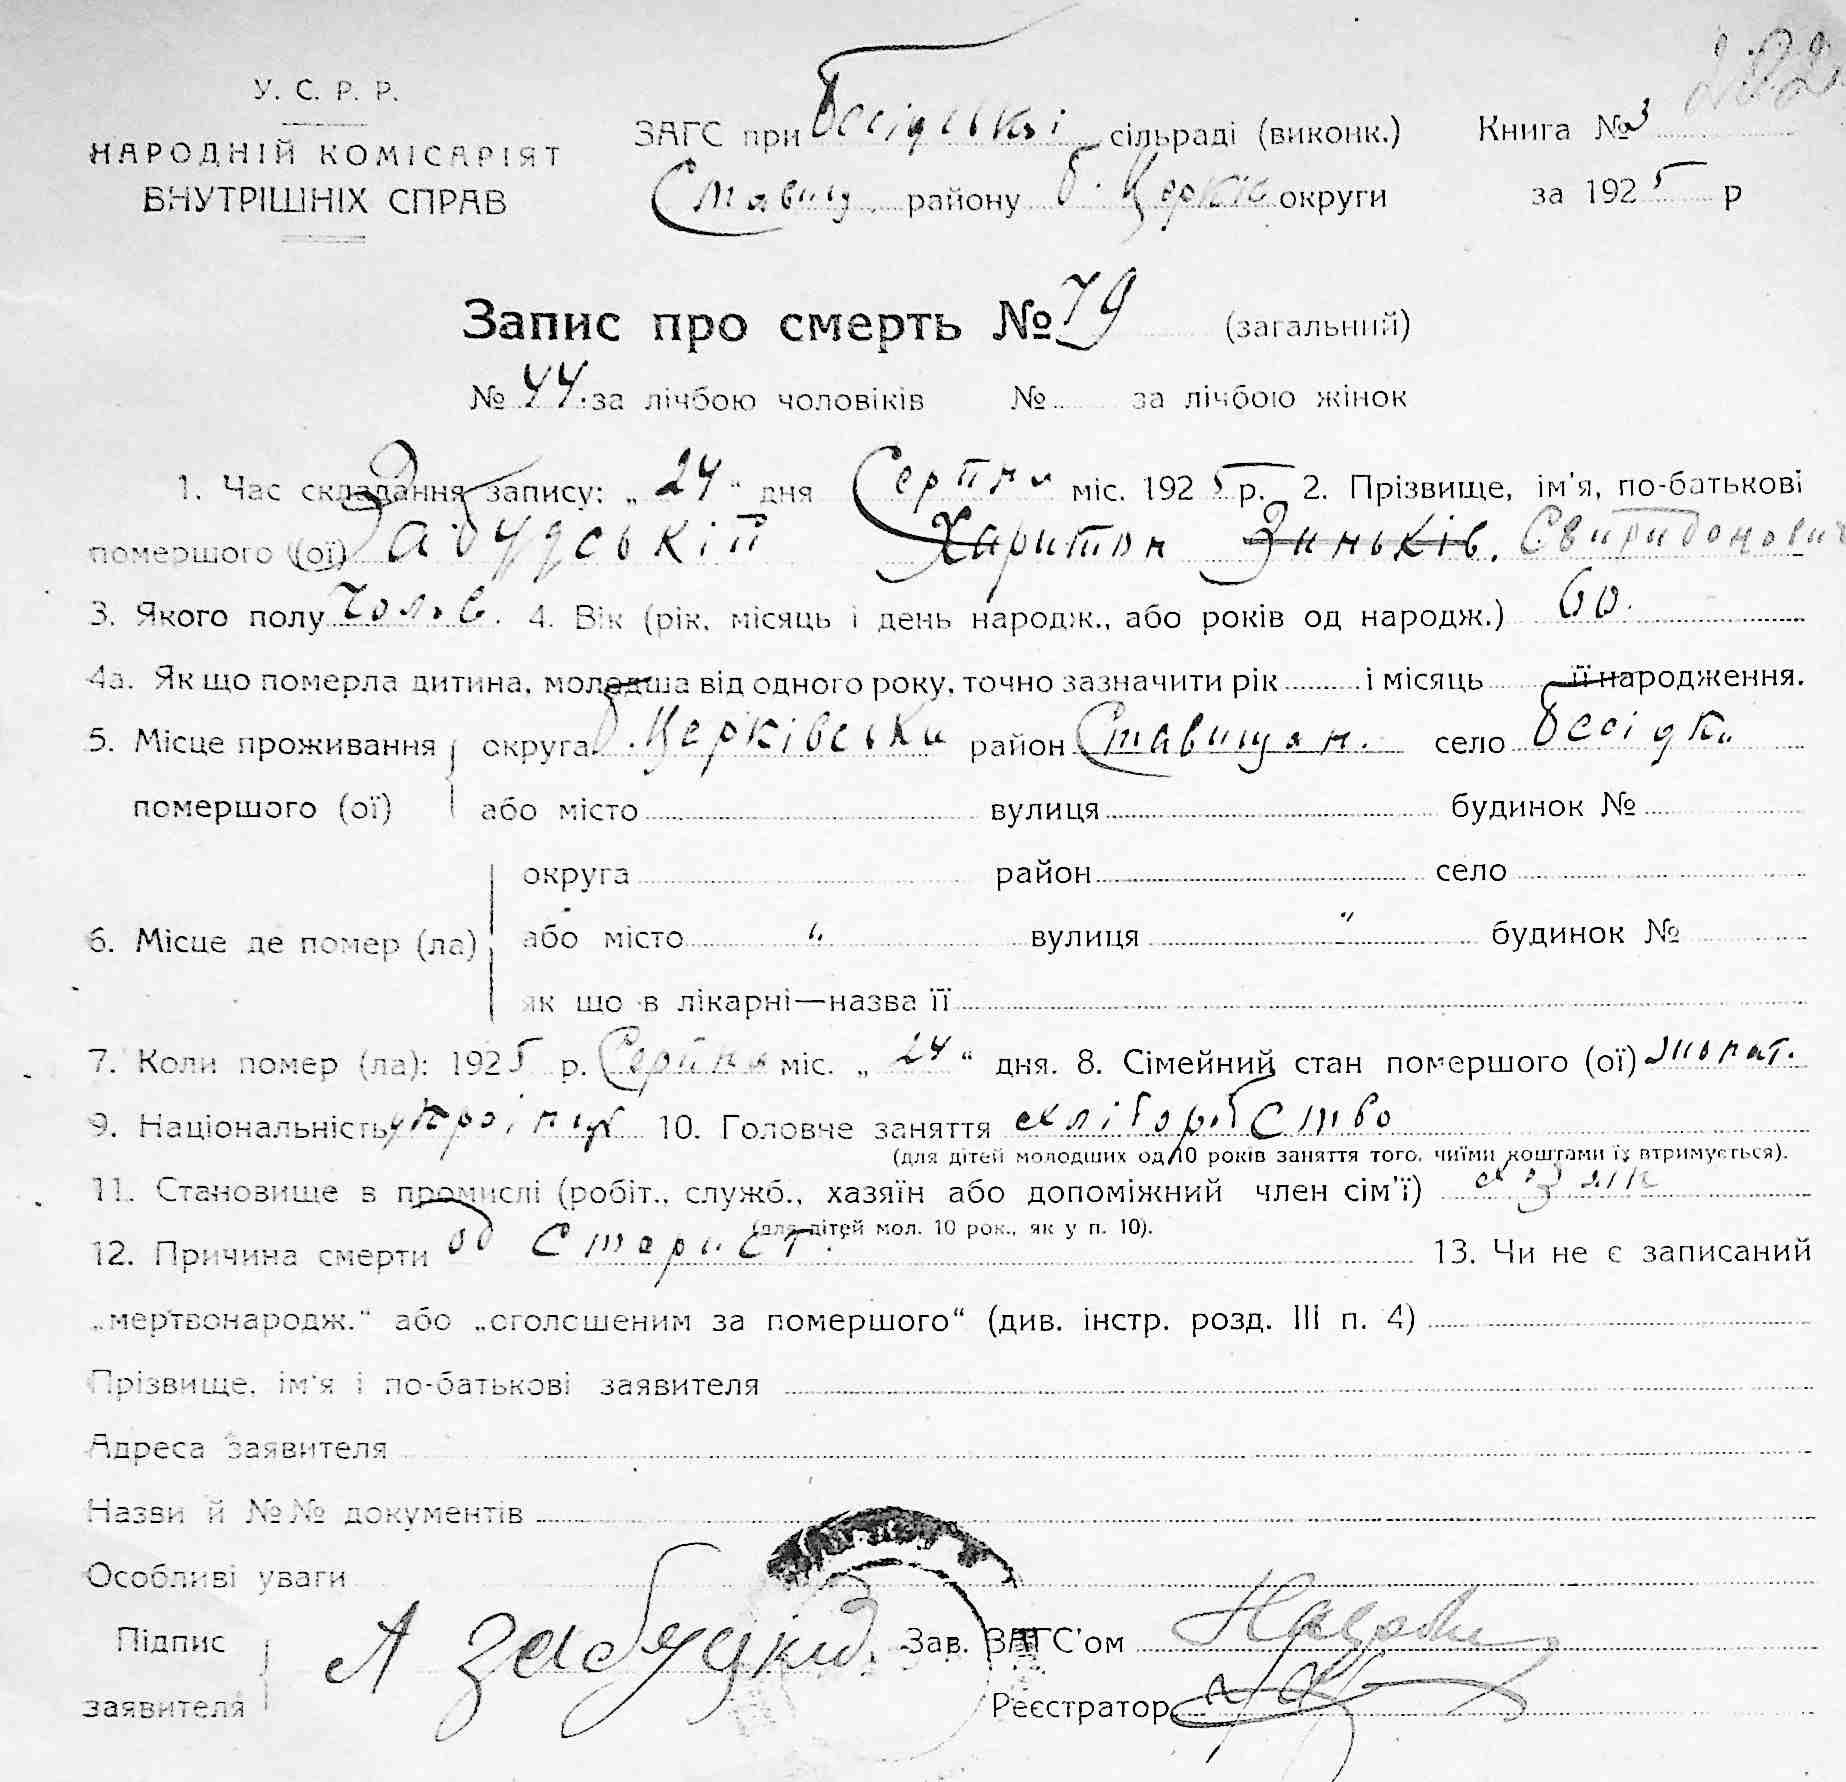 У. С. Р. Р.
НАРОДНІЙ КОМІСАРІЯТ
ВНУТРІШНІХ СПРАВ
ЗАГС при Бесідській сільраді (виконк.) Книга № 3
Ставищ. району Б. Церків округи за 1925 р
Запис про смерть № 79 (загальний)
№ 44. за лічбою чоловіків № за лічбою жінок
1. Час складання запису: „24“ дня Серпня міс. 1925 р. 2. Прізвище, ім'я, по-батькові
помершого (ої) Забудській Харитон Зиньків. Свиридонович
3. Якого полу чолов. 4. Вік (рік, місяць і день народж., або років од народж.) 60.
4а. Як що померла дитина, молодша від одного року, точно зазначити рік і місяць її народження.
5. Місце проживання округа Б. Церківська район Ставищан. село Бесідка
помершого (ої) або місто вулиця будинок №
округа район село
6. Місце де помер (ла) або місто " вулиця " будинок №
як що в лікарні—назва її
7. Коли помер (ла): 1925 р. Серпня міс. „24“ дня. 8. Сімейний стан помершого (ої) жонат.
9. Національність україн 10. Головче заняття хліборобство
(для дітей молодших од 10 років заняття того, чиїми коштами їх втримується).
11. Становище в промислі (робіт., служб., хазяїн або допоміжний член сім'ї) хозяін
(для дітей мол. 10 рок., як у п. 10).
12. Причина смерти од старист. 13. Чи не є записаний
„мертвонародж.“ або „оголошеним за помершого“ (див. інстр. розд. III п. 4)
Прізвище, ім'я і по-батькові заявителя
Адреса заявителя
Назви й №№ документів
Особливі уваги
Підпис заявителя А Забуцкій Зав. ЗАГС'ом
Реєстратор